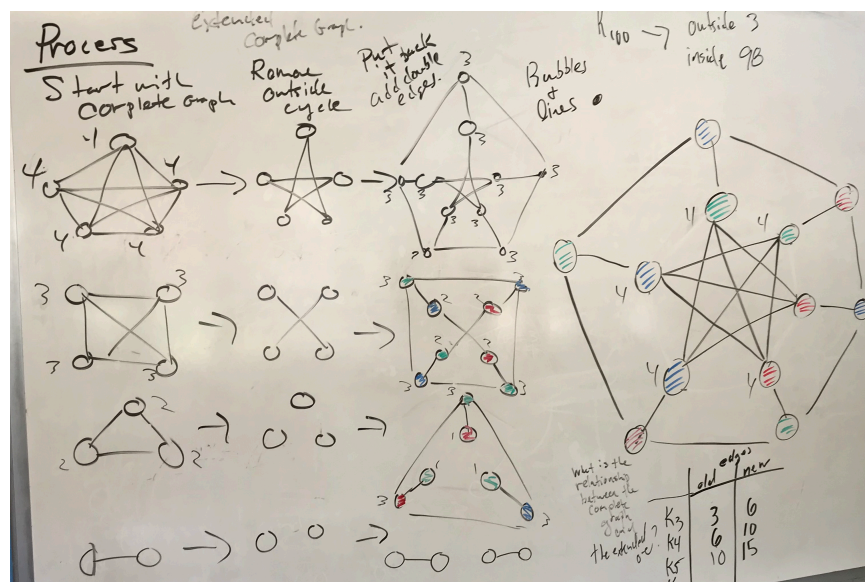 extended
complete Graph.
Process
Start with
complete Graph
Remove
outside
cycle
Put it back
add double
edges.
Bubbles
+
lines
K100 → outside 3
inside 98
4
4 4
4 4
3
3
3 3 3 3
3 3
3 3
3 3
3 3
3 3
2 2
2 2
3 3
2
2 2
3
1
1
3 3
4 4
4
4 4
what is the
relationship
between the
complete
graph
and
the extended
one?
edges
old new
K3 3 6
K4 6 10
K5 10 15